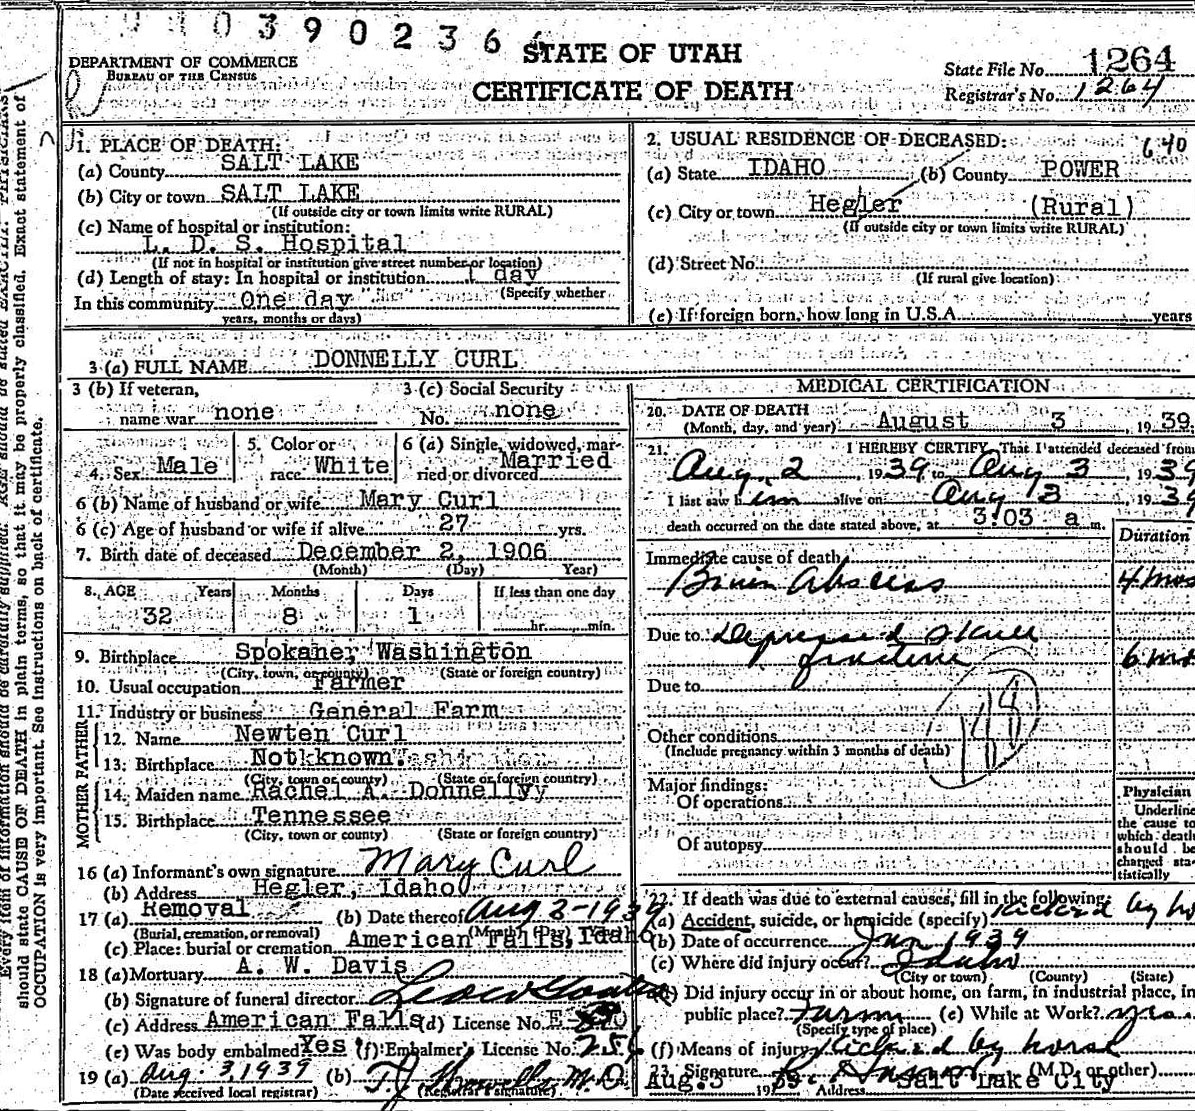 039023
DEPARTMENT OF COMMERCE
BUREAU OF THE CENSUS
STATE OF UTAH
CERTIFICATE OF DEATH
State File No. 1264
Registrar's No. 1264
1. PLACE OF DEATH:
(a) County SALT LAKE
(b) City or town SALT LAKE
(If outside city or town limits write RURAL)
(c) Name of hospital or institution:
L. D. S. Hospital
(If not in hospital or institution give street number or location)
(d) Length of stay: In hospital or institution 1 day
(Specify whether
In this community One day
years, months or days)
2. USUAL RESIDENCE OF DECEASED: 640
(a) State IDAHO (b) County POWER
(c) City or town Hegler (Rural)
(If outside city or town limits write RURAL)
(d) Street No.
(If rural give location)
(e) If foreign born, how long in U.S.A. years
3 (a) FULL NAME DONNELLY CURL
3 (b) If veteran,
name war none
3 (c) Social Security
No. none
4. Sex Male
5. Color or
race White
6 (a) Single, widowed, mar-
ried or divorced Married
6 (b) Name of husband or wife Mary Curl
6 (c) Age of husband or wife if alive 27 yrs.
7. Birth date of deceased December 2, 1906
(Month) (Day) Year)
8. AGE Years Months Days If less than one day
32 8 1 hr. min.
9. Birthplace Spokane, Washington
(City, town, or county) (State or foreign country)
10. Usual occupation Farmer
11. Industry or business General Farm
FATHER
12. Name Newten Curl
13. Birthplace Not known.
(City, town or county) (State or foreign country)
MOTHER
14. Maiden name Rachel A. Donnellyy
15. Birthplace Tennessee
(City, town or county) (State or foreign country)
16 (a) Informant's own signature Mary Curl
(b) Address Hegler, Idaho
17 (a) Removal (b) Date thereof Aug 3-1939
(Burial, cremation, or removal) (Month) (Day)
(c) Place: burial or cremation American Falls, Idaho
18 (a) Mortuary A. W. Davis
(b) Signature of funeral director
(c) Address American Falls (d) License No. E-
(e) Was body embalmed Yes (f) Embalmer's License No. 256
19 (a) Aug. 3, 1939 (b) M.D.
(Date received local registrar) (Registrar's signature)
MEDICAL CERTIFICATION
20. DATE OF DEATH
(Month, day, and year) August 3, 1939.
21. I HEREBY CERTIFY, That I attended deceased from
Aug 2, 1939 to Aug 3, 1939
I last saw him alive on Aug 3, 1939
death occurred on the date stated above, at 3:03 a m.
Duration
Immediate cause of death
Brain Abscess 4 mos
Due to Depressed skull
fracture 6 mos
Due to
144
Other conditions
(Include pregnancy within 3 months of death)
Major findings:
Of operations
Of autopsy
Physician
Underline
the cause to
which death
should be
charged sta-
tistically
22. If death was due to external causes, fill in the following:
(a) Accident, suicide, or homicide (specify) Kicked by ho
(b) Date of occurrence Jan 1939
(c) Where did injury occur? Idaho
(City or town) (County) (State)
(d) Did injury occur in or about home, on farm, in industrial place, in
public place? Farm (e) While at Work? yes
(Specify type of place)
(f) Means of injury Kicked by horse
23. Signature (M.D. or other)
Aug. 3 1939 Address Salt Lake City
should state CAUSE OF DEATH in plain terms, so that it may be properly classified. Exact statement of
OCCUPATION is very important. See instructions on back of certificate.